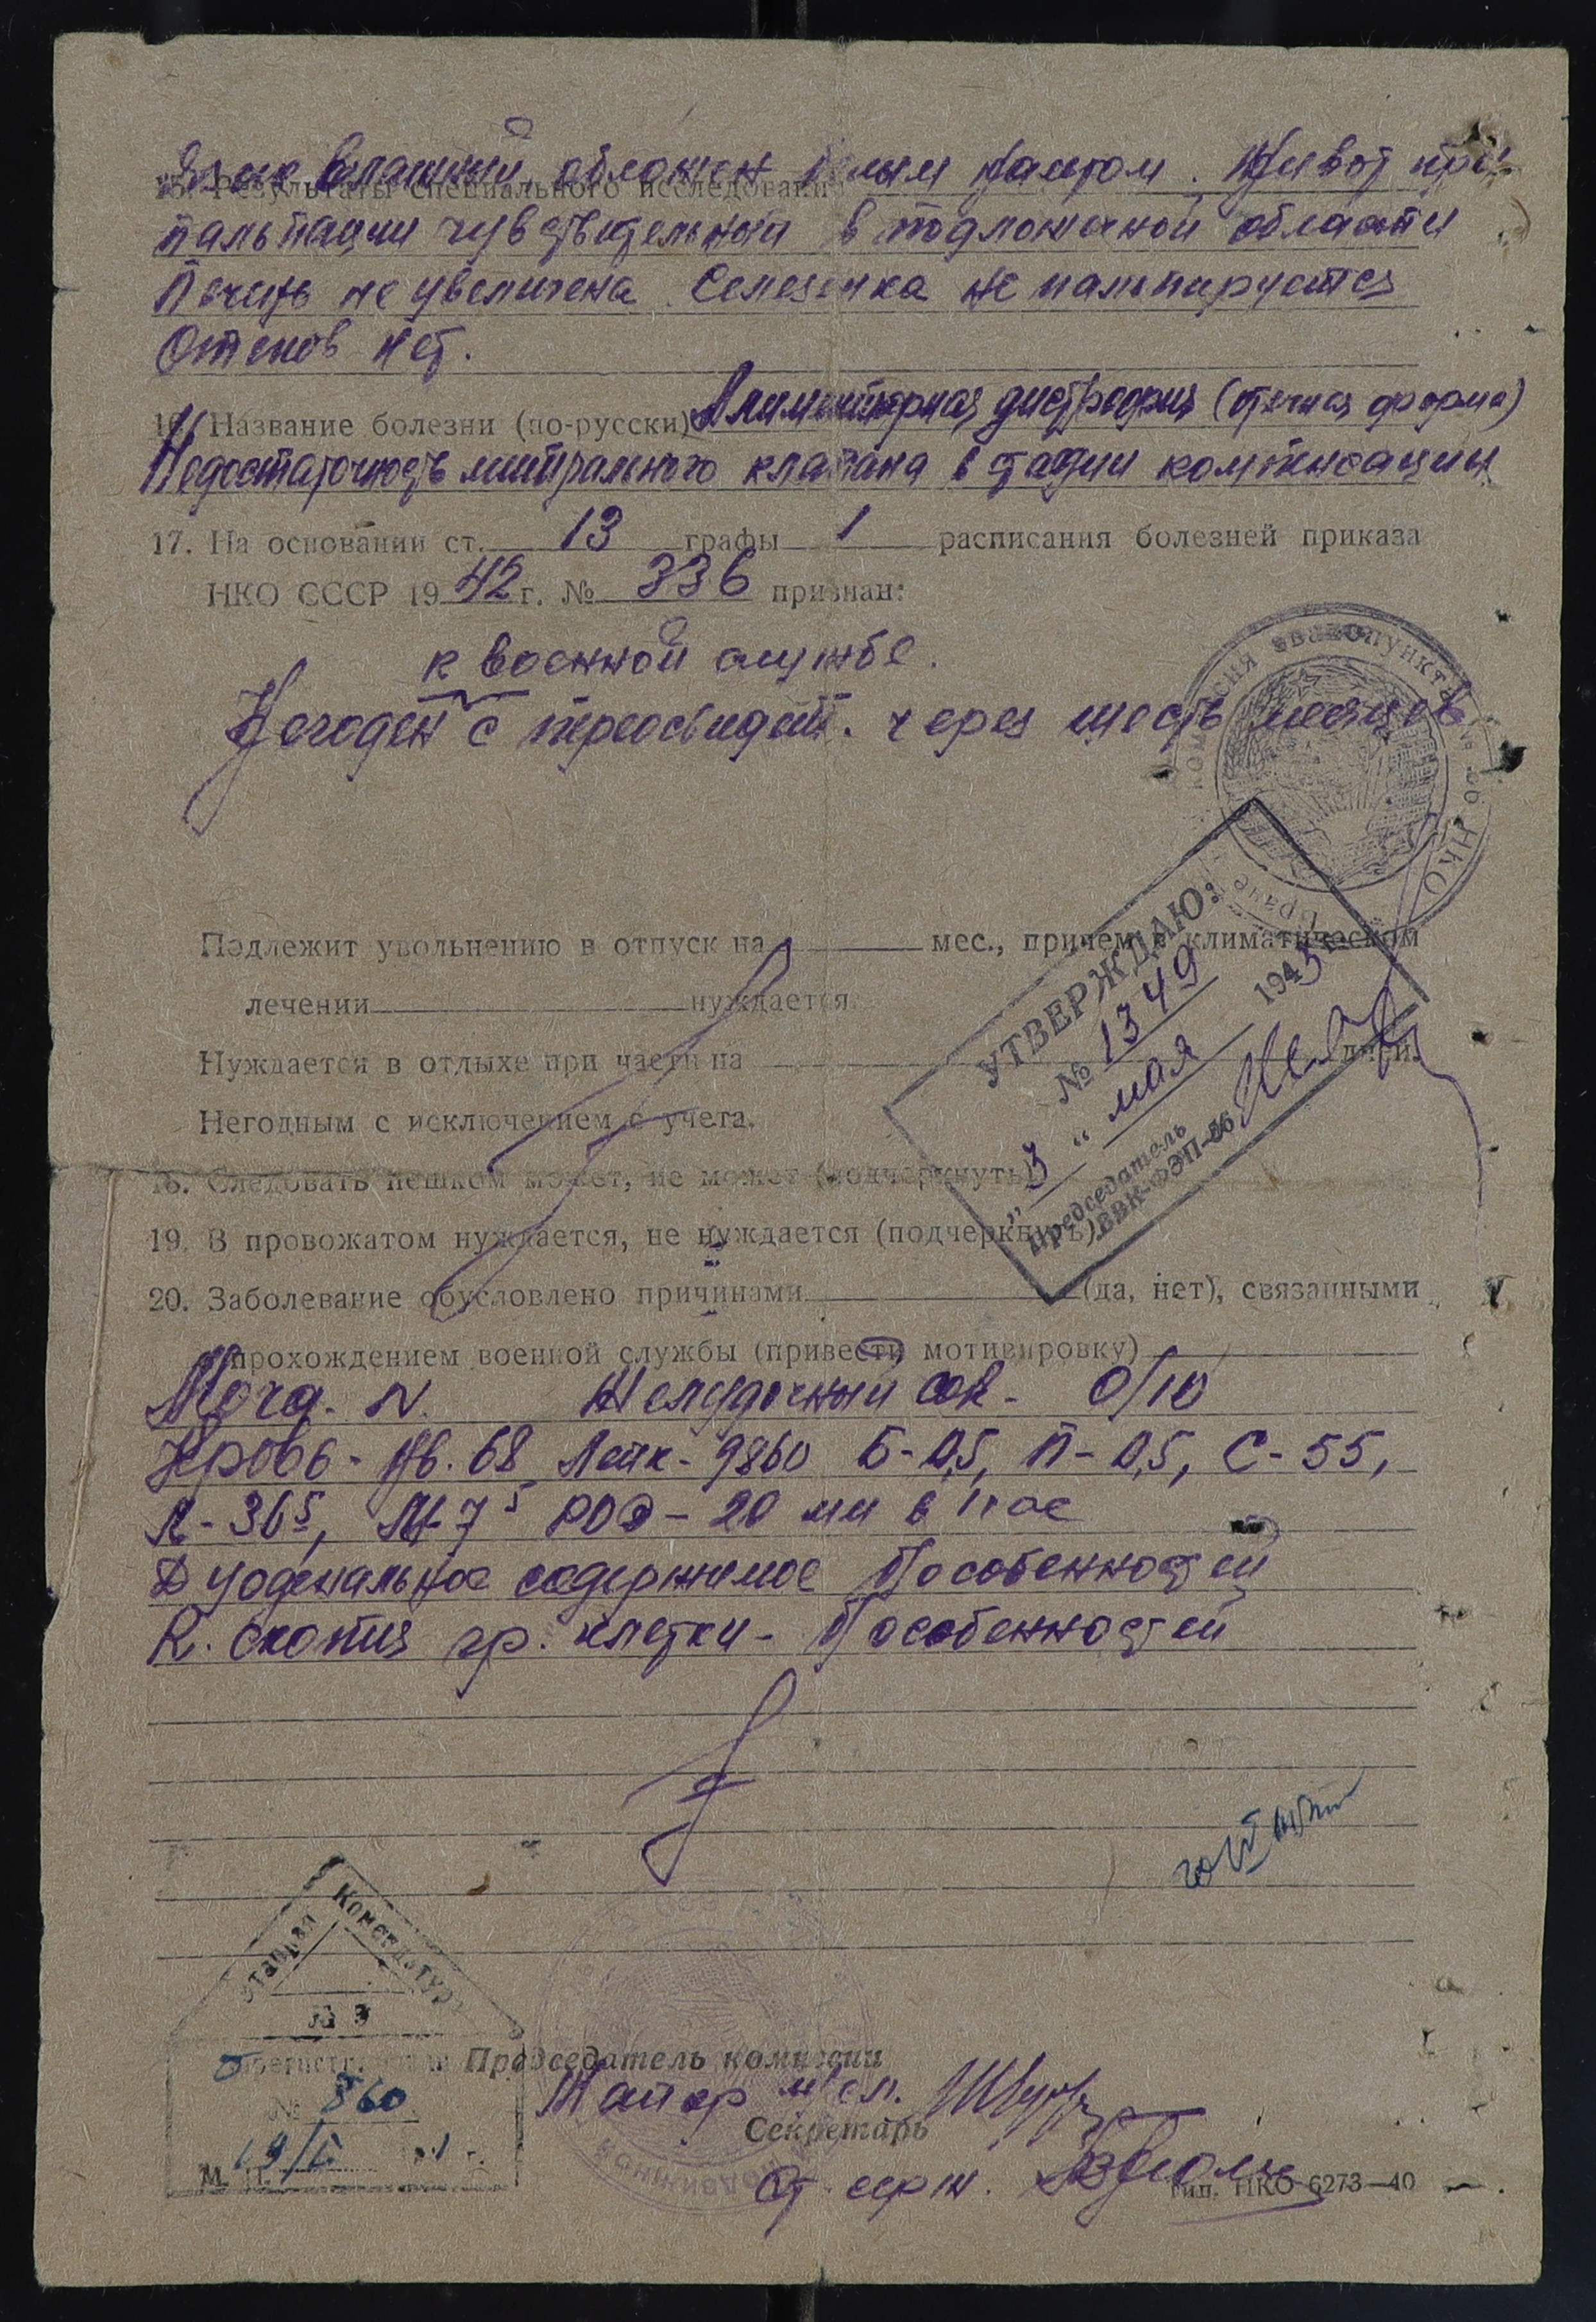 Язык влажный, обложен белым налетом. Живот при
15. Результаты специального исследования
пальпации чувствительный в подложечной области
Печень не увеличена. Селезенка не пальпируется
Отеков нет.
16. Название болезни (по-русски) Алиментарная дистрофия (отечная форма)
Недостаточность митрального клапана в стадии компенсации
17. На основании ст. 13 графы 1 расписания болезней приказа
НКО СССР 1942 г. № 336 признан:
к военной службе.
Негоден с переосвидет. через шесть месяцев
Подлежит увольнению в отпуск на мес., причем в климатическом
лечении нуждается.
Нуждается в отдыхе при части на дней.
Негодным с исключением с учета.
18. Следовать пешком может, не может (подчеркнуть)
19. В провожатом нуждается, не нуждается (подчеркнуть)
20. Заболевание обусловлено причинами (да, нет), связанными
прохождением военной службы (привести мотивировку)
УТВЕРЖДАЮ:
№ 1349
"3" мая 1945
Председатель
ВВК-ФЭП-
комиссия эвакопункта
НКО
Моча - N. Желудочный сок - 0/10
Кровь - Нв. 68 Лейк - 9860 Б - 0,5, П - 0,5, С - 55,
Л - 36⁵, М - 7⁵ РОЭ - 20 мм в час
Дуоденальное содержимое б/особенностей
R. скопия гр. клетки - б/особенностей
Комендатура
№ 3
№ 860
М. П.
Председатель комиссии
Майор м/сл.
Секретарь
Ст. серж.
Тип. НКО 6273—40